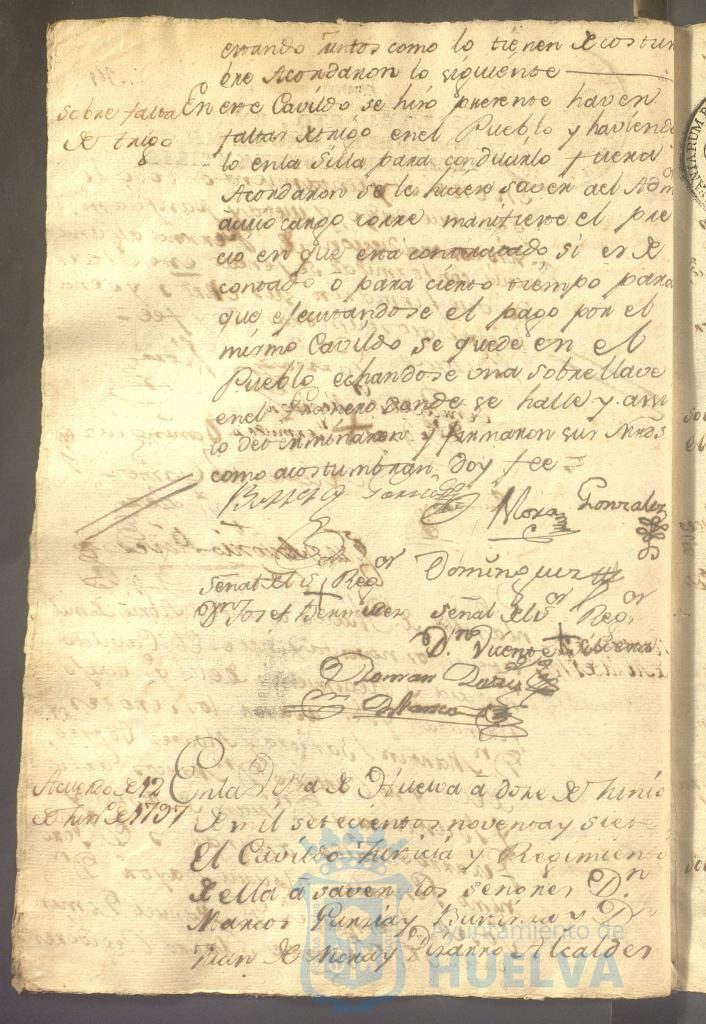 estando juntos como lo tienen de costum
bre Acordaron lo siguiente
Sobre falta
de trigo
En este Cavildo se hizo presente haver
faltas de trigo en el Pueblo y haviendo
lo en la Silla para conducirlo fuera
Acordaron se le hiciese saver al Adm
a cuio cargo corre mantiene el pre
cio en que está contratado si es de
contado o para cierto tiempo para
que efecutandose el pago por el
mismo Cavildo se quede en el
Pueblo echandose una sobrellave
en el Granero donde se halle y asi
lo determinaron y firmaron sus Mrds
como acostumbran, doy fee
Mora Gonzalez
Señal del Sor Regor Dominguez
Dn Josef Bermudez Señal del Sor Regor
Dn Vicente
Roman
Blanco
Acuerdo de 12
de Juno de 1797
En la Villa de Huelva a doze de Junio
de mil setecientos noventa y siete
El Cavildo Justicia y Regimiento
de ella a saver los señores Dn
Marcos Garzia y Dn
Juan de Mora y Pizarro Alcaldes
Ayuntamiento de
HUELVA